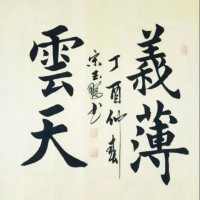 義薄
丁酉仲春
宋玉书
雲天